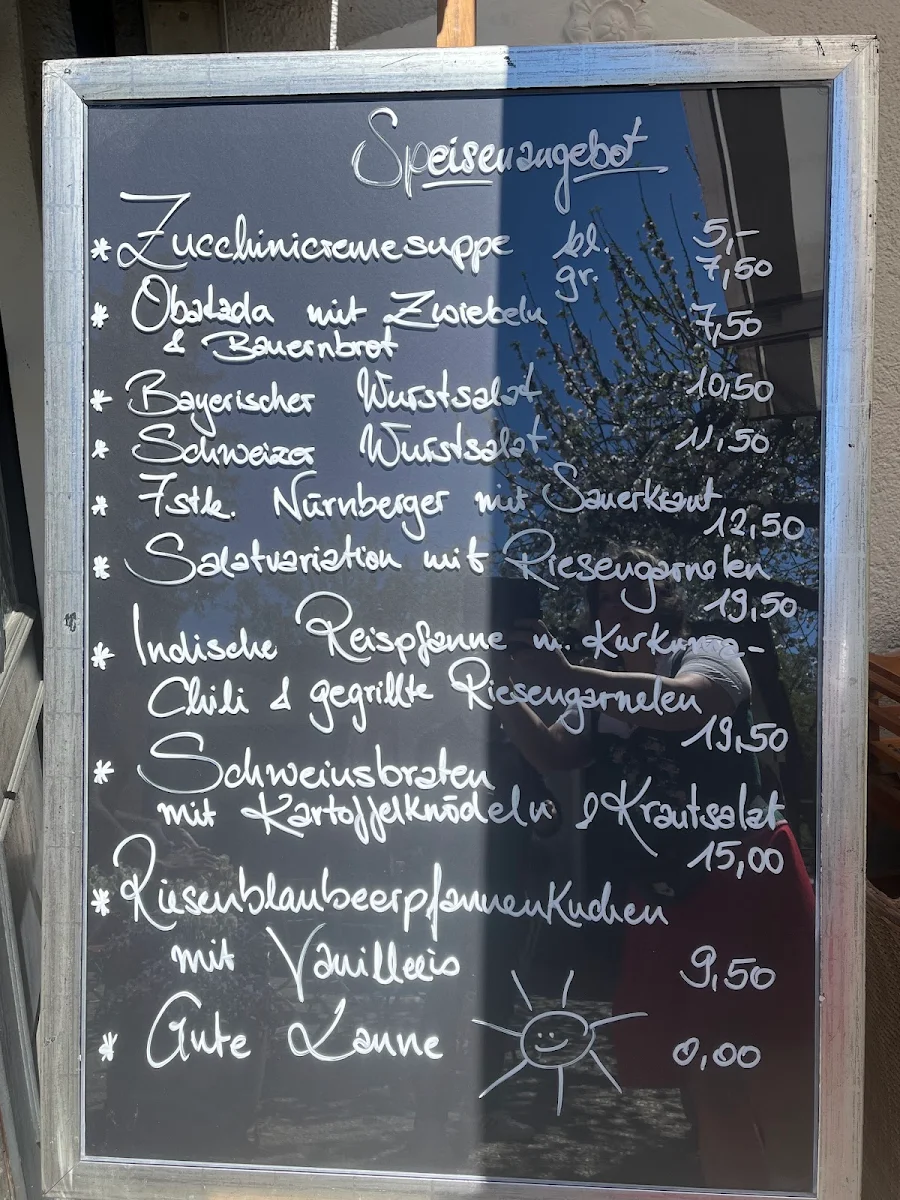 Speisenangebot
* Zucchinicremesuppe kl. 5,-
gr. 7,50
* Obatzda mit Zwiebeln 7,50
& Bauernbrot
* Bayerischer Wurstsalat 10,50
* Schweizer Wurstsalat 11,50
* 7stk. Nürnberger mit Sauerkraut
12,50
* Salatvariation mit Riesengarnelen
19,50
* Indische Reispfanne m. Kurkuma-
Chili & gegrillte Riesengarnelen
19,50
* Schweinsbraten
mit Kartoffelknödeln & Krautsalat
15,00
* Riesenblaubeerpfannenkuchen
mit Vanilleeis 9,50
* Gute Laune 0,00